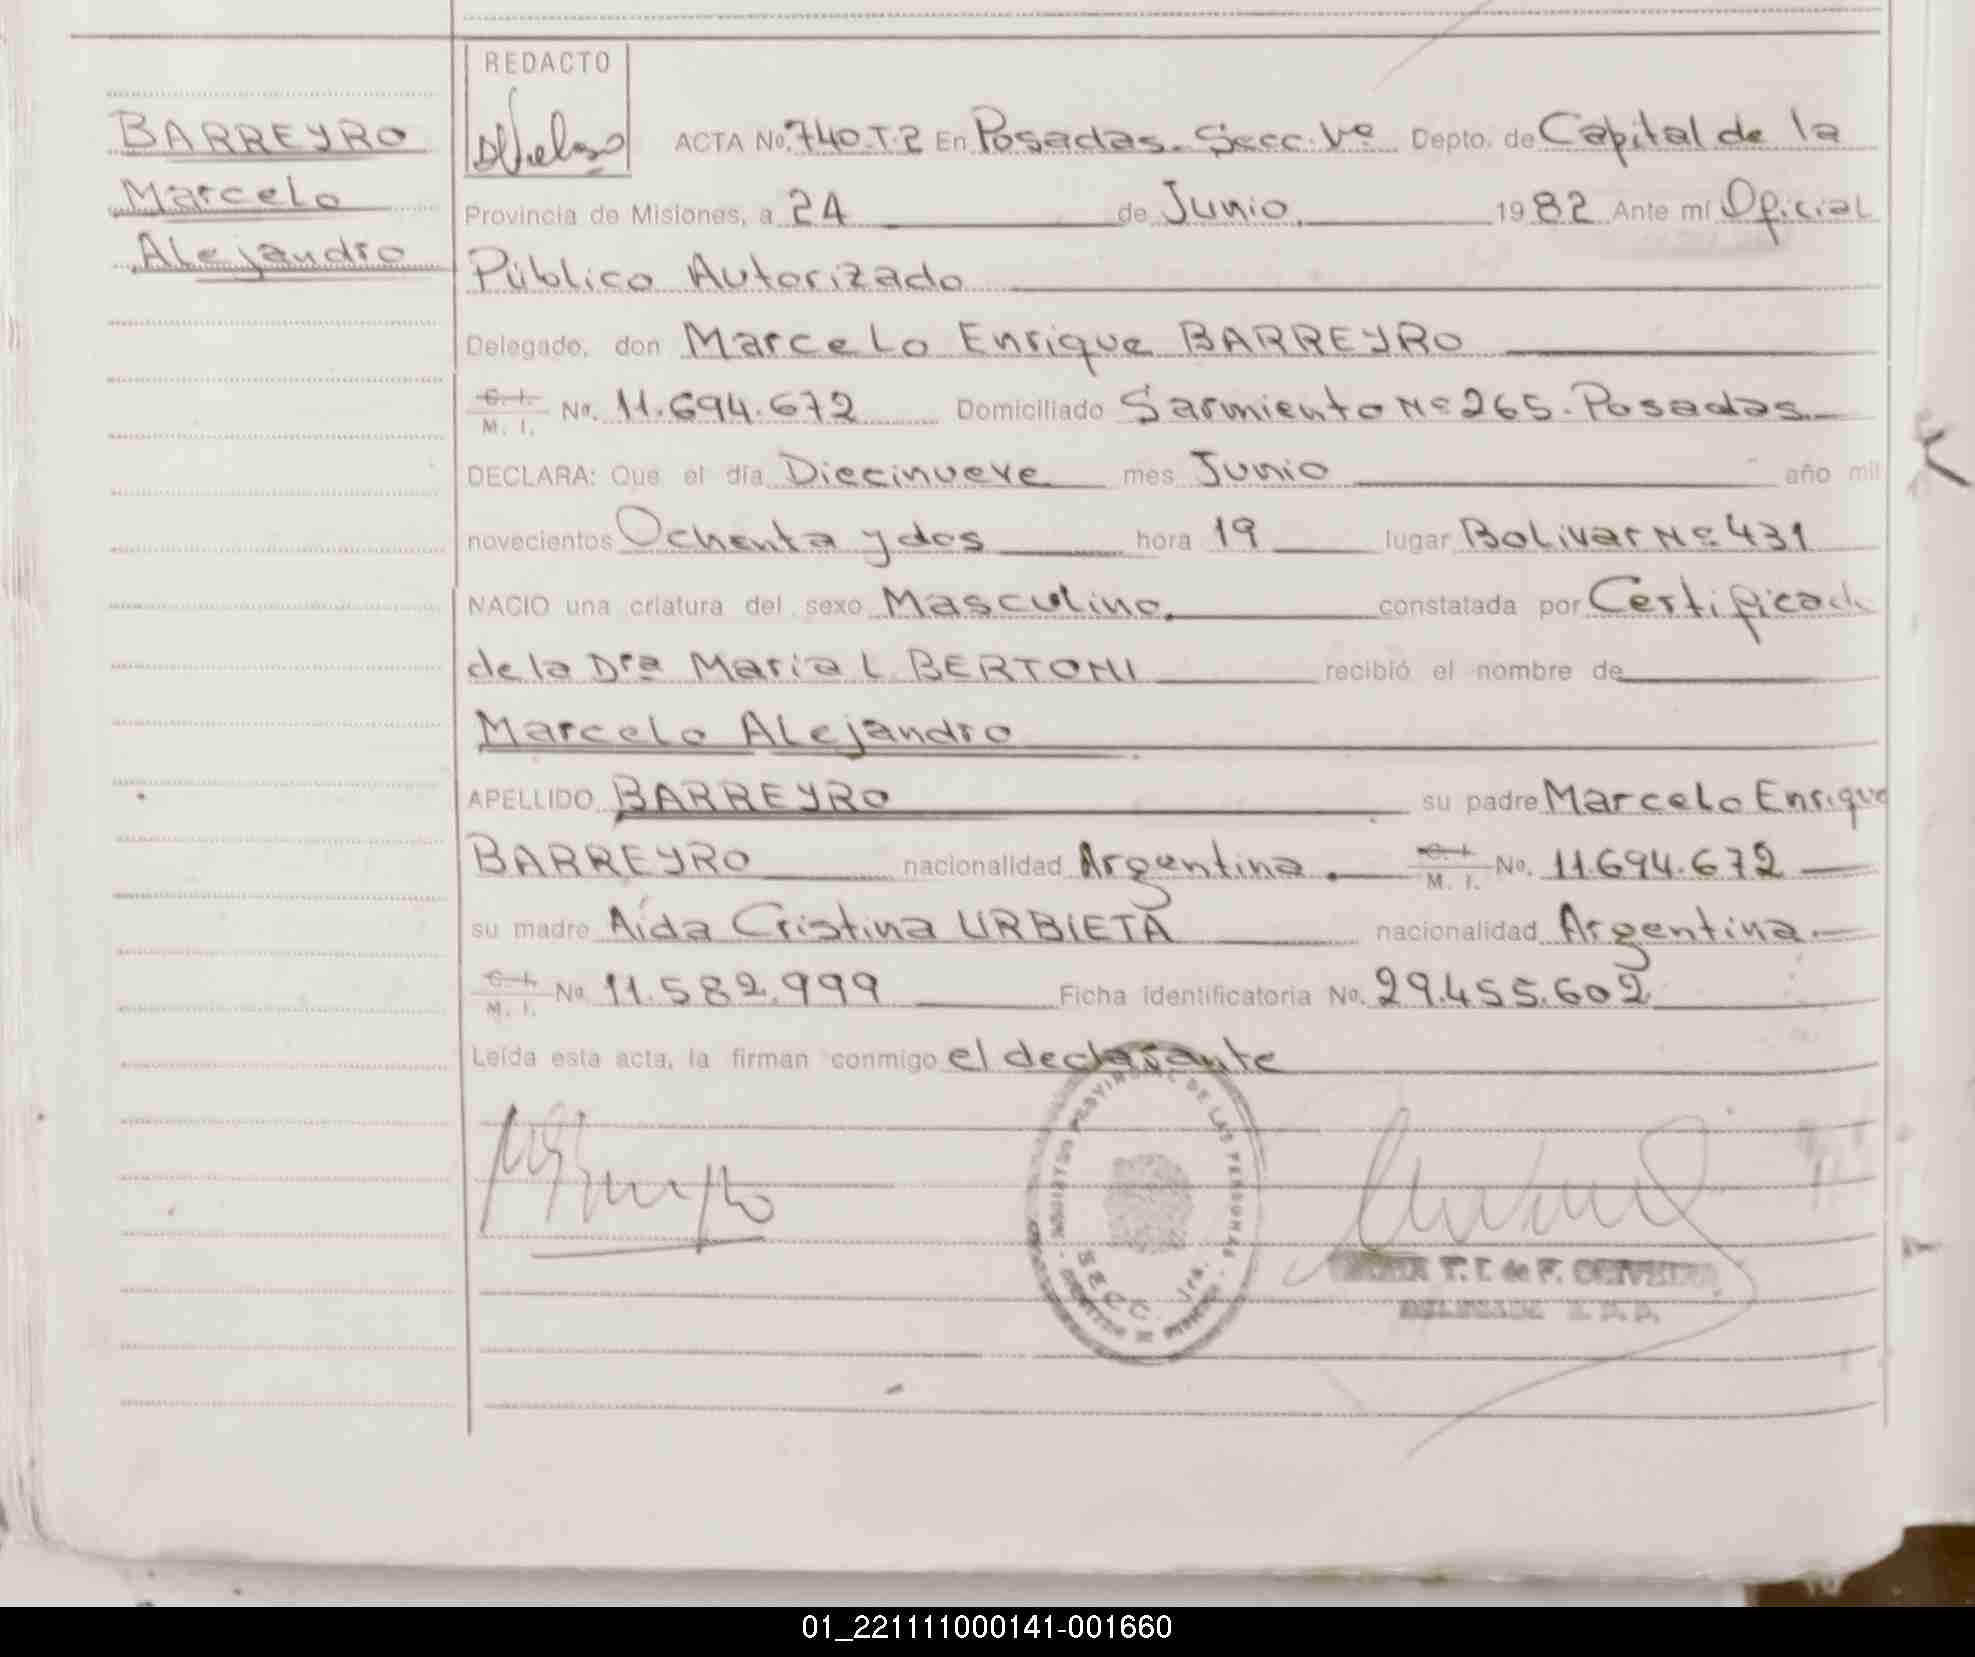 REDACTO
BARREYRO
Marcelo
Alejandro
ACTA No. 740.T.2 En Posadas. Secc. 1º Depto. de Capital de la
Provincia de Misiones, a 24 de Junio 1982 Ante mí Oficial
Público Autorizado
Delegado, don Marcelo Enrique BARREYRO
C. I. M. I. No. 11.694.672 Domiciliado Sarmiento Nº 265. Posadas.
DECLARA: Que el día Diecinueve mes Junio año mil
novecientos Ochenta y dos hora 19 lugar Bolivar Nº 431
NACIO una criatura del sexo Masculino. constatada por Certificado
de la Dra Maria L BERTONI recibió el nombre de
Marcelo Alejandro
APELLIDO BARREYRO su padre Marcelo Enrique
BARREYRO nacionalidad Argentina. C. I. M. I. No. 11.694.672
su madre Aída Cristina URBIETA nacionalidad Argentina
C. I. M. I. No 11.582.999 Ficha identificatoria No. 29.455.602
Leída esta acta, la firman conmigo el declarante
PROVINCIAL DE LAS PERSONAS
SECC. 1ra.
T. I. de F.
01_221111000141-001660